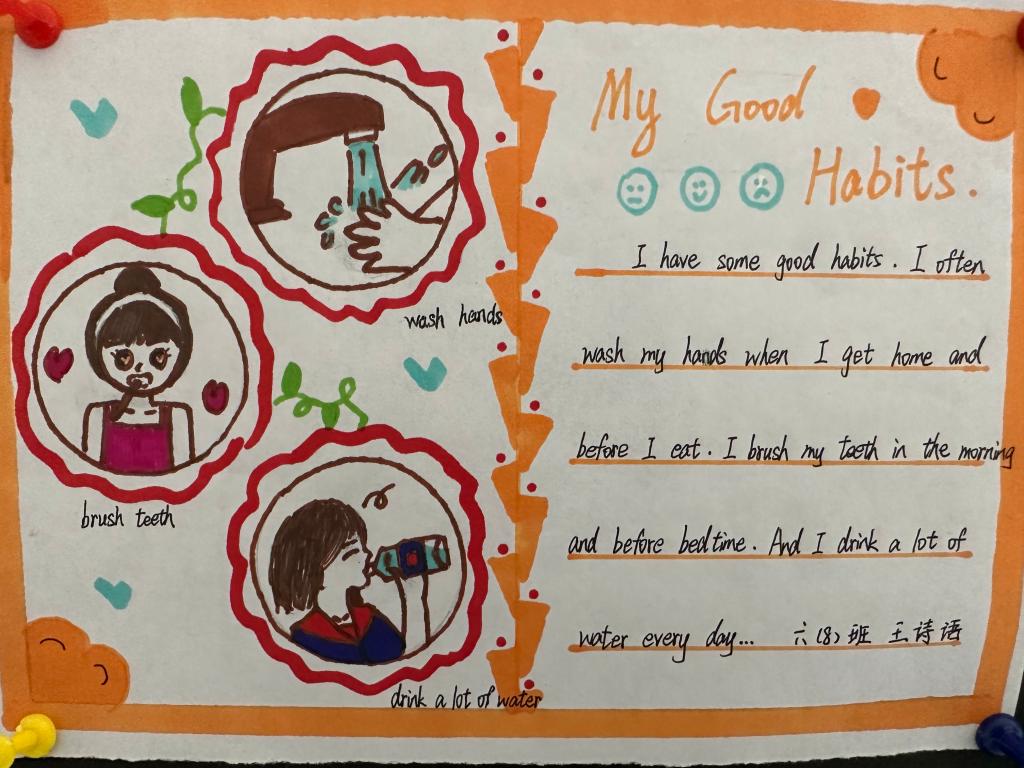 My Good
Habits.
wash hands
brush teeth
drink a lot of water
I have some good habits. I often
wash my hands when I get home and
before I eat. I brush my teeth in the morning
and before bedtime. And I drink a lot of
water every day... 六(8)班 王诗语